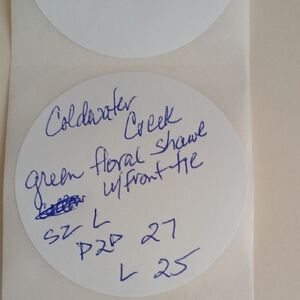 Coldwater
Creek
green floral shawl
w/front tie
SZ L
P2P 27
L 25